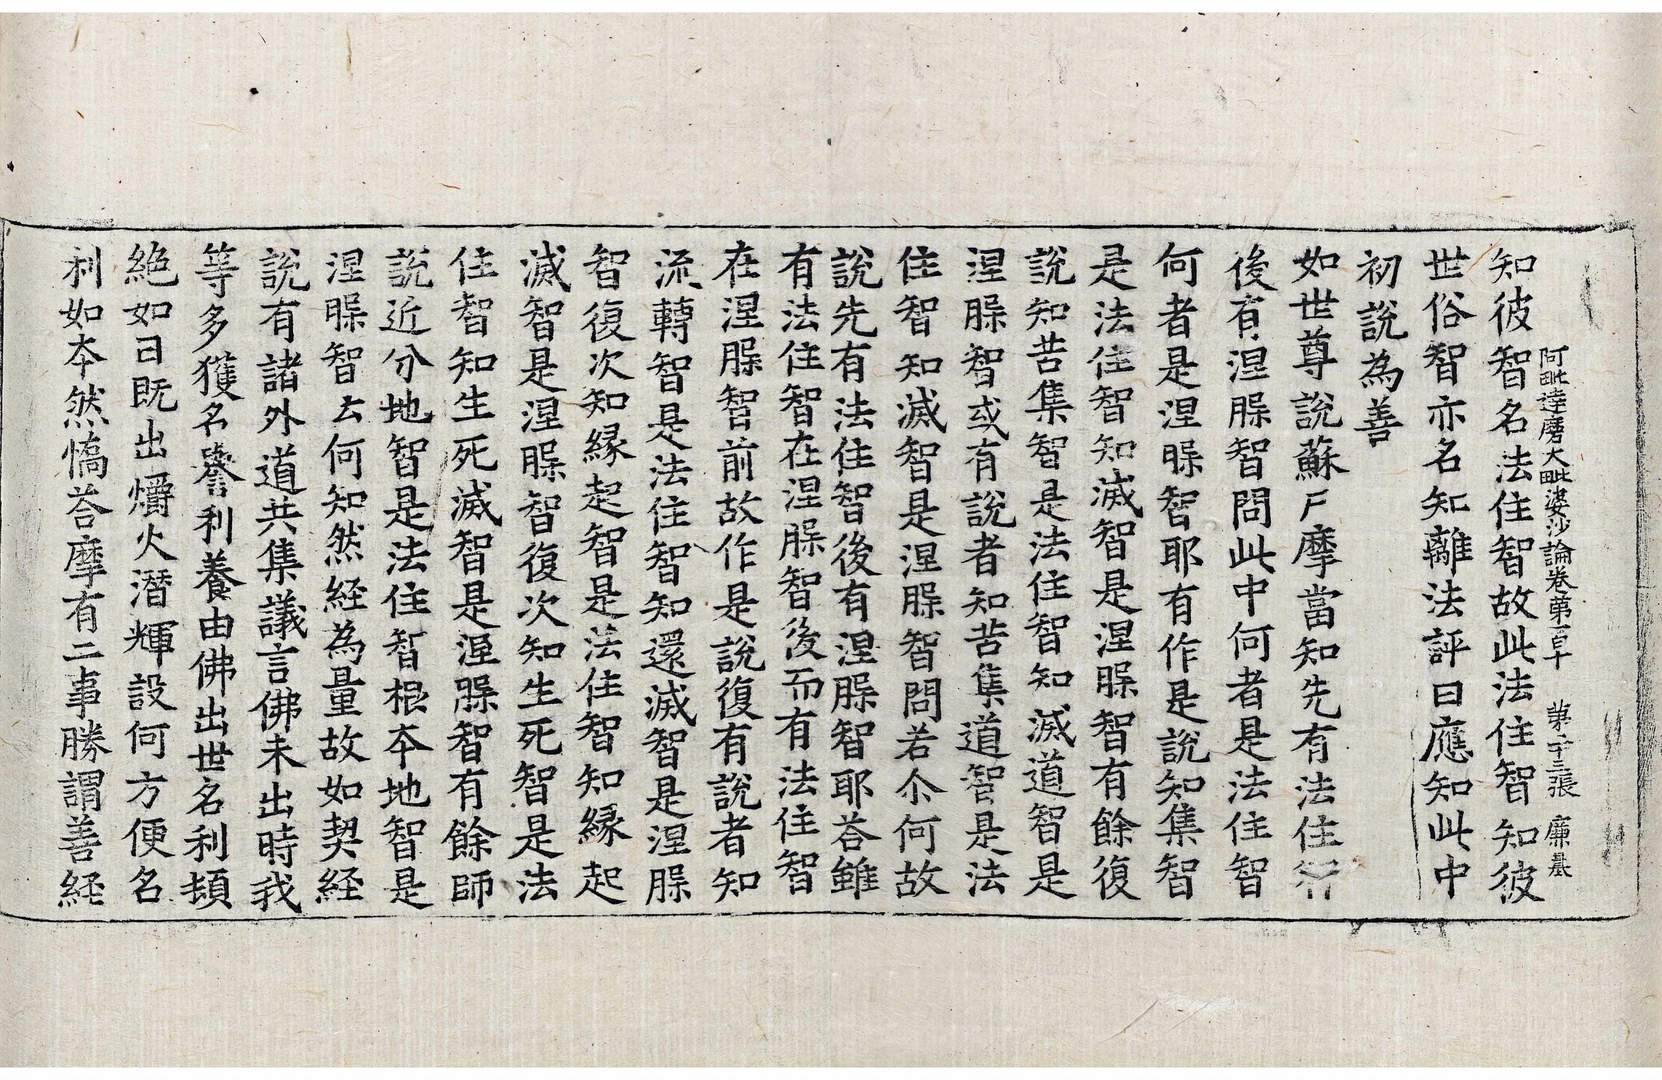 阿毗達磨大毗婆沙論卷第一百十 第十三張 廉
知彼智名法住智故此法住智知彼
世俗智亦名知離法評曰應知此中
初說為善
如世尊說蘇尸摩當知先有法住智
後有涅槃智問此中何者是法住智
何者是涅槃智耶有作是說知集智
是法住智知滅智是涅槃智有餘復
說知苦集智是法住智知滅道智是
涅槃智或有說者知苦集道智是法
住智知滅智是涅槃智問若尒何故
說先有法住智後有涅槃智耶荅雖
有法住智在涅槃智後而有法住智
在涅槃智前故作是說復有說者知
流轉智是法住智知還滅智是涅槃
智復次知緣起智是法住智知緣起
滅智是涅槃智復次知生死智是法
住智知生死滅智是涅槃智有餘師
說近分地智是法住智根本地智是
涅槃智云何知然經為量故如契經
說有諸外道共集議言佛未出時我
等多獲名譽利養由佛出世名利頓
絕如日既出爝火潛輝設何方便名
利如本然憍荅摩有二事勝謂善經